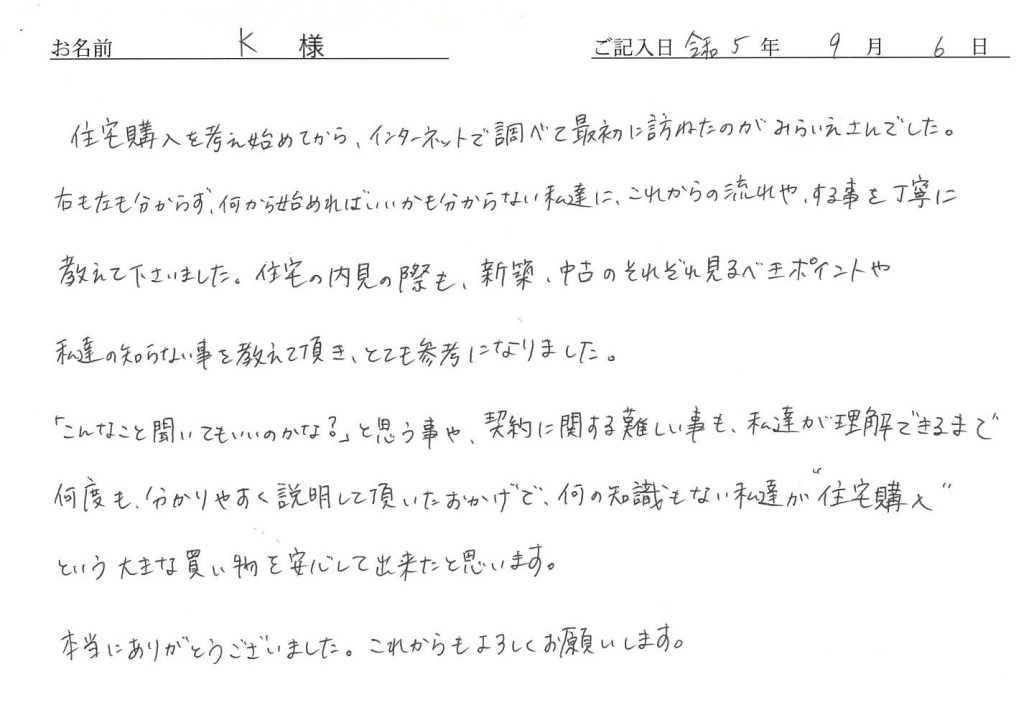 お名前 K 様 ご記入日 令和5年 9月 6日
住宅購入を考え始めてから、インターネットで調べて最初に訪ねたのがみらいえさんでした。
右も左も分からず、何から始めればいいかも分からない私達に、これからの流れや、する事を丁寧に
教えて下さいました。住宅の内見の際も、新築、中古のそれぞれ見るべきポイントや
私達の知らない事を教えて頂き、とても参考になりました。
「こんなこと聞いてもいいのかな?」と思う事や、契約に関する難しい事も、私達が理解できるまで
何度も、分かりやすく説明して頂いたおかげで、何の知識もない私達が"住宅購入"
という大きな買い物を安心して出来たと思います。
本当にありがとうございました。これからもよろしくお願いします。